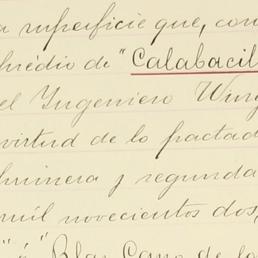 a superficie que, con
predio de "Calabacil
el Ingeniero
virtud de lo pactad
primera y segunda
mil novecientos dos,
" ó " Blas Cano de la